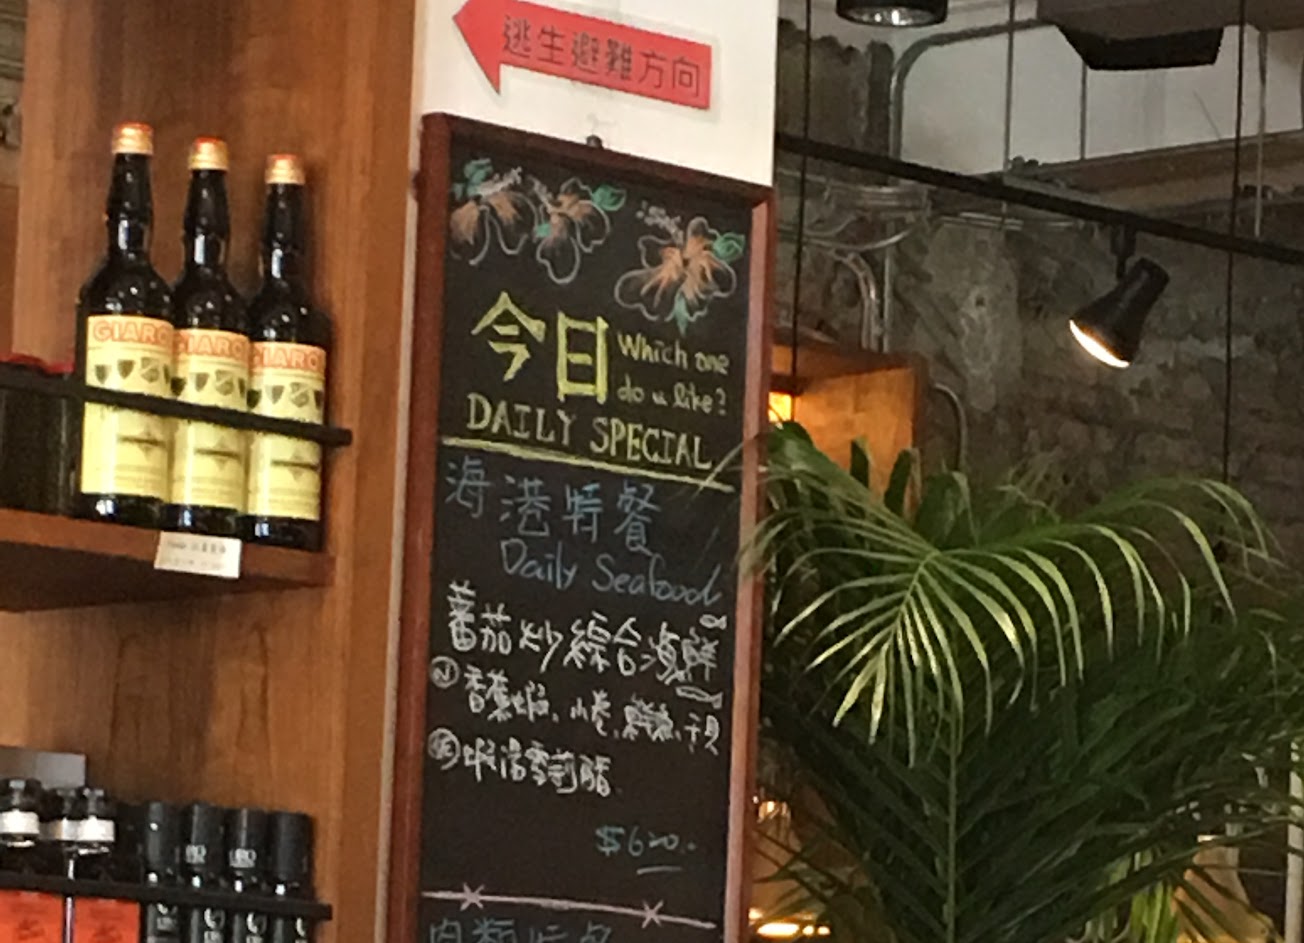 逃生避難方向
今日
Which one
do u like?
DAILY SPECIAL
海港特餐
Daily Seafood
蕃茄炒綜合海鮮
香蕉蝦、小卷、鮮魚、干貝
蝦湯雪莉醋
$620.-
GIARO
GIARO
GIARO